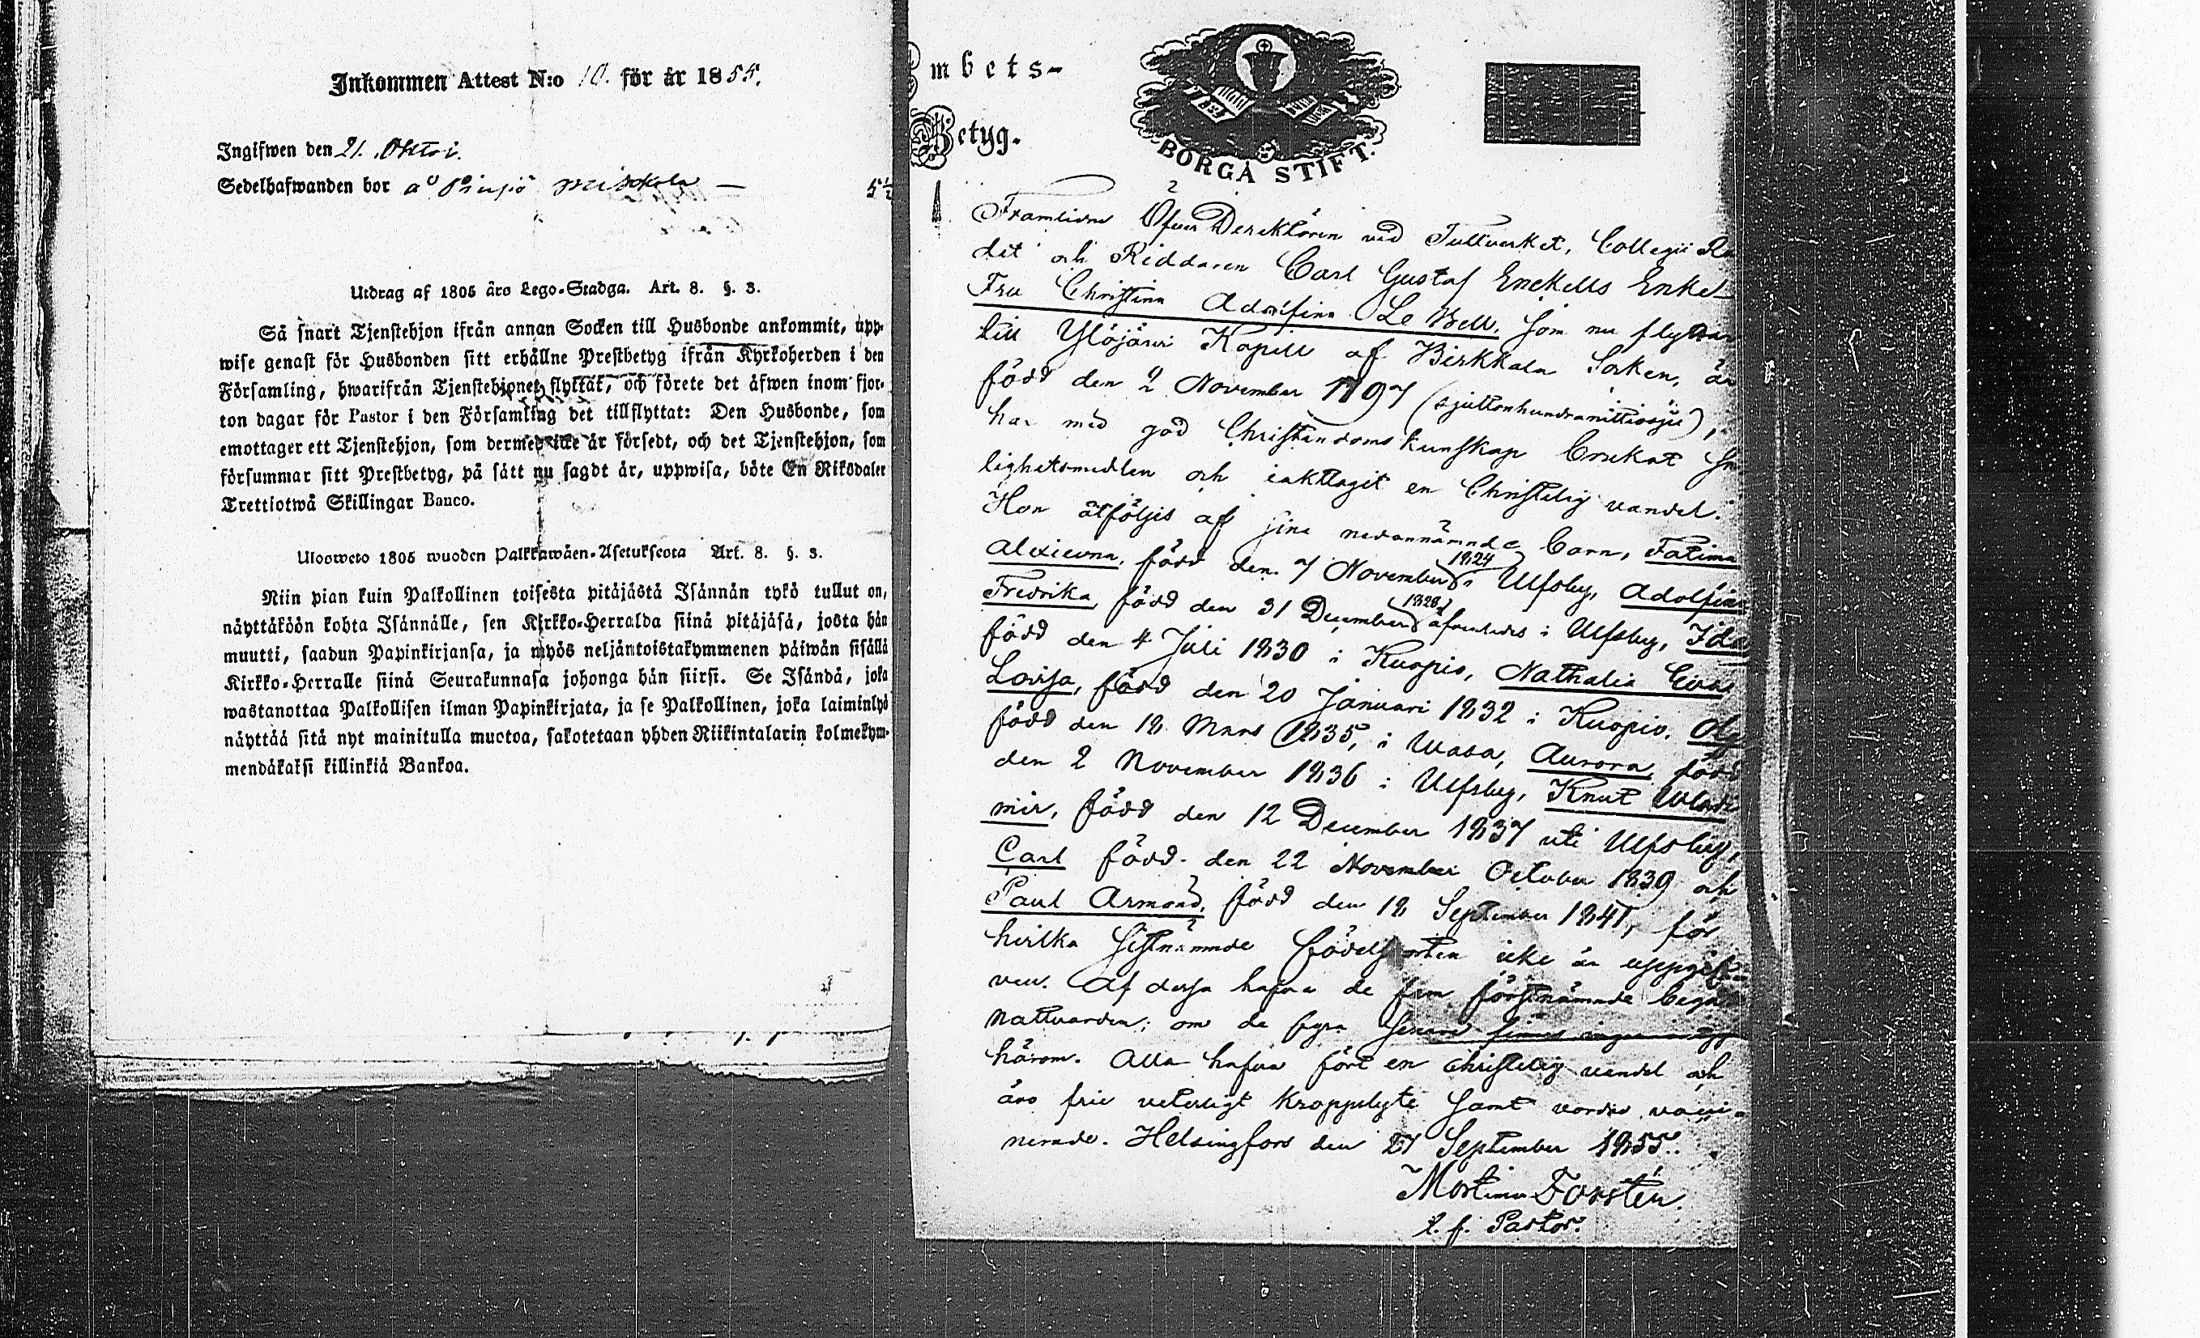 Inkommen Attest N:o 10. för år 1855.
Ingifwen den 21. Oktbr.
Sedelhafwanden bor å
Utdrag af 1805 års Lego-Stadga. Art. 8. §. 3.
Så snart Tjenstehjon ifrån annan Socken till Husbonde ankommit, upp-
wise genast för Husbonden sitt erhållne Prestbetyg ifrån Kyrkoherden i den
Församling, hwarifrån Tjenstehjonet flyttat, och förete det äfwen inom fjor-
ton dagar för Pastor i den Församling det tillflyttat: Den Husbonde, som
emottager ett Tjenstehjon, som dermed icke är försedt, och det Tjenstehjon, som
försummar sitt Prestbetyg, på sätt nu sagdt är, uppwisa, böte En Riksdaler
Trettiotwå Skillingar Banco.
Ulosweto 1805 wuoden Palkkawäen-Asetuksesta Art. 8. §. 3.
Niin pian kuin Palkollinen toisesta pitäjästä Isännän tykö tullut on,
näyttäköön kohta Isännälle, sen Kirkko-Herralda siinä pitäjäsä, josta hän
muutti, saadun Papinkirjansa, ja myös neljäntoistakymmenen päiwän sisällä
Kirkko-Herralle siinä Seurakunnasa johonga hän siirsi. Se Isändä, joka
wastanottaa Palkollisen ilman Papinkirjata, ja se Palkollinen, joka laiminlyö
näyttää sitä nyt mainitulla muotoa, sakotetaan yhden Riikintalarin kolmekym-
mendäkaksi killinkiä Bankoa.
Embets-
Betyg.
BORGÅ STIFT.
Framlidne Öfver Direktören vid Tullverket, Collegii Rå
det och Riddaren Carl Gustaf Enckells Enke-
Fru Christina Adolfina Le Bell, som nu flyttar
till Ylöjärvi Kapell af Birkkala Socken, är
född den 2 November 1797 (sjuttonhundranittiosju),
har med god Christendoms kunskap brukat Sa
lighetsmedlen och iakttagit en Christelig vandel.
Hon åtföljes af sina nedannämnde barn, Fatima
Alexievna, född den 7 November 1824 i Ulfsby, Adolfina
Fredrika född den 31 December 1828 i Ulfsby, Ida
född den 4 Juli 1830 i Kuopio, Nathalia Eva
Lovisa, född den 20 Januari 1832 i Kuopio,
född den 18 Mars 1835, i Wasa, Aurora, född
den 2 November 1836 i Ulfsby, Knut Wladi
mir, född den 12 December 1837 uti Ulfsby,
Carl född den 22 November October 1839 och
Paul Armand, född den 18 September 1841, för
hvilka sistnämnde födelseorten icke är uppgif
ven. Af dessa hafva de fem förstnämnde begått
Nattvarden; om de fyra senare finnes ingen
härom. Alla hafva fört en christelig vandel och
äro frie veterligt kroppslyte samt vorden vacci-
nerade. Helsingfors den 27 September 1855.
Mortimer Forstén.
t. f. Pastor.